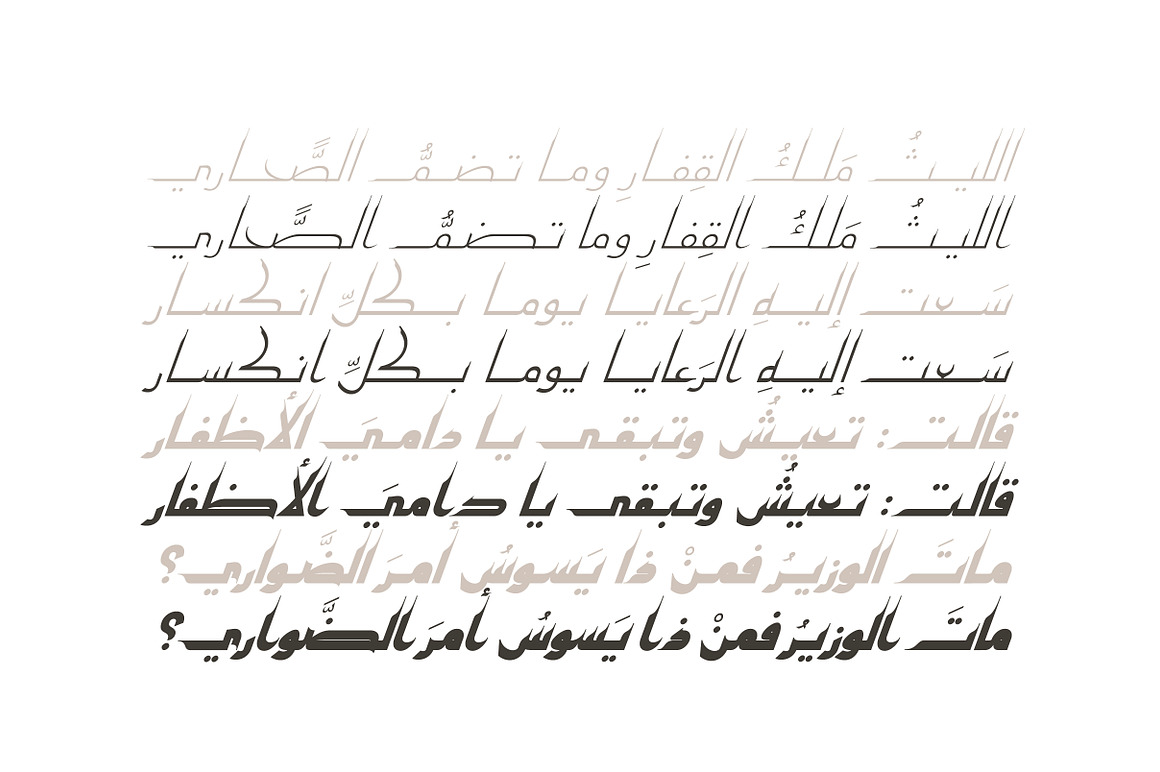 الليثُ مَلكُ القِفارِ وما تضمُّ الصَّحاري
الليثُ مَلكُ القِفارِ وما تضمُّ الصَّحاري
سَعت إليهِ الرَعايا يوما بكلِّ انكسار
سَعت إليهِ الرَعايا يوما بكلِّ انكسار
قالت: تعيشُ وتبقى يا داميَ الأظفار
قالت: تعيشُ وتبقى يا داميَ الأظفار
ماتَ الوزيرُ فمنْ ذا يَسوسُ أمرَ الضَّواري؟
ماتَ الوزيرُ فمنْ ذا يَسوسُ أمرَ الضَّواري؟